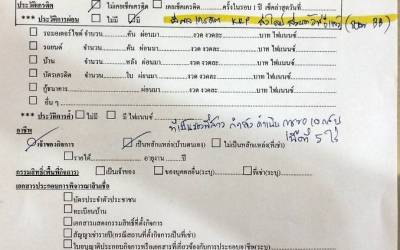 ประวัติเครดิต ไม่เคยเช็คเครดิต เคยเช็คเครดิต ครั้งในรอบ 1 ปี เช็คล่าสุดวันที่
*** ประวัติการผ่อน ไม่มี มี
รถมอเตอร์ไซค์ จำนวน คัน ผ่อนมา งวด งวดละ บาท ไฟแนนซ์
รถยนต์ จำนวน คัน ผ่อนมา งวด งวดละ บาท ไฟแนนซ์
บ้าน จำนวน ผ่อนมา งวด งวดละ บาท ไฟแนนซ์
บัตรเครดิต จำนวน ใบ ผ่อนมา งวด งวดละ บาท ไฟแนนซ์
กู้ธนาคาร ผ่อนมา งวด งวดละ บาท ไฟแนนซ์
อื่น ๆ
*** ประวัติการค้ำ ไม่มี มี ไฟแนนซ์
อาชีพ
เจ้าของกิจการ เป็นหลักแหล่ง(บ้านตนเอง) ไม่เป็นหลักแหล่ง(ที่เช่า) เนื้อที่ 5 ไร่
รายได้ อายุงาน ปี
กรรมสิทธิ์พื้นที่กิจการ เป็นเจ้าของ ของบุคคลอื่น(ระบุ) ที่เช่า(ระบุ)
เอกสารประกอบการพิจารณาสินเชื่อ
บัตรประจำตัวประชาชน
ทะเบียนบ้าน
เอกสารแสดงกรรมสิทธิ์ที่ตั้งกิจการ
สัญญาเช่ารายปี(กรณีสถานที่ตั้งกิจการเป็นที่เช่า)
ใบอนุญาตประกอบกิจการหรือเอกสารที่เกี่ยวข้องกับการประกอบอาชีพ(ระบุ)